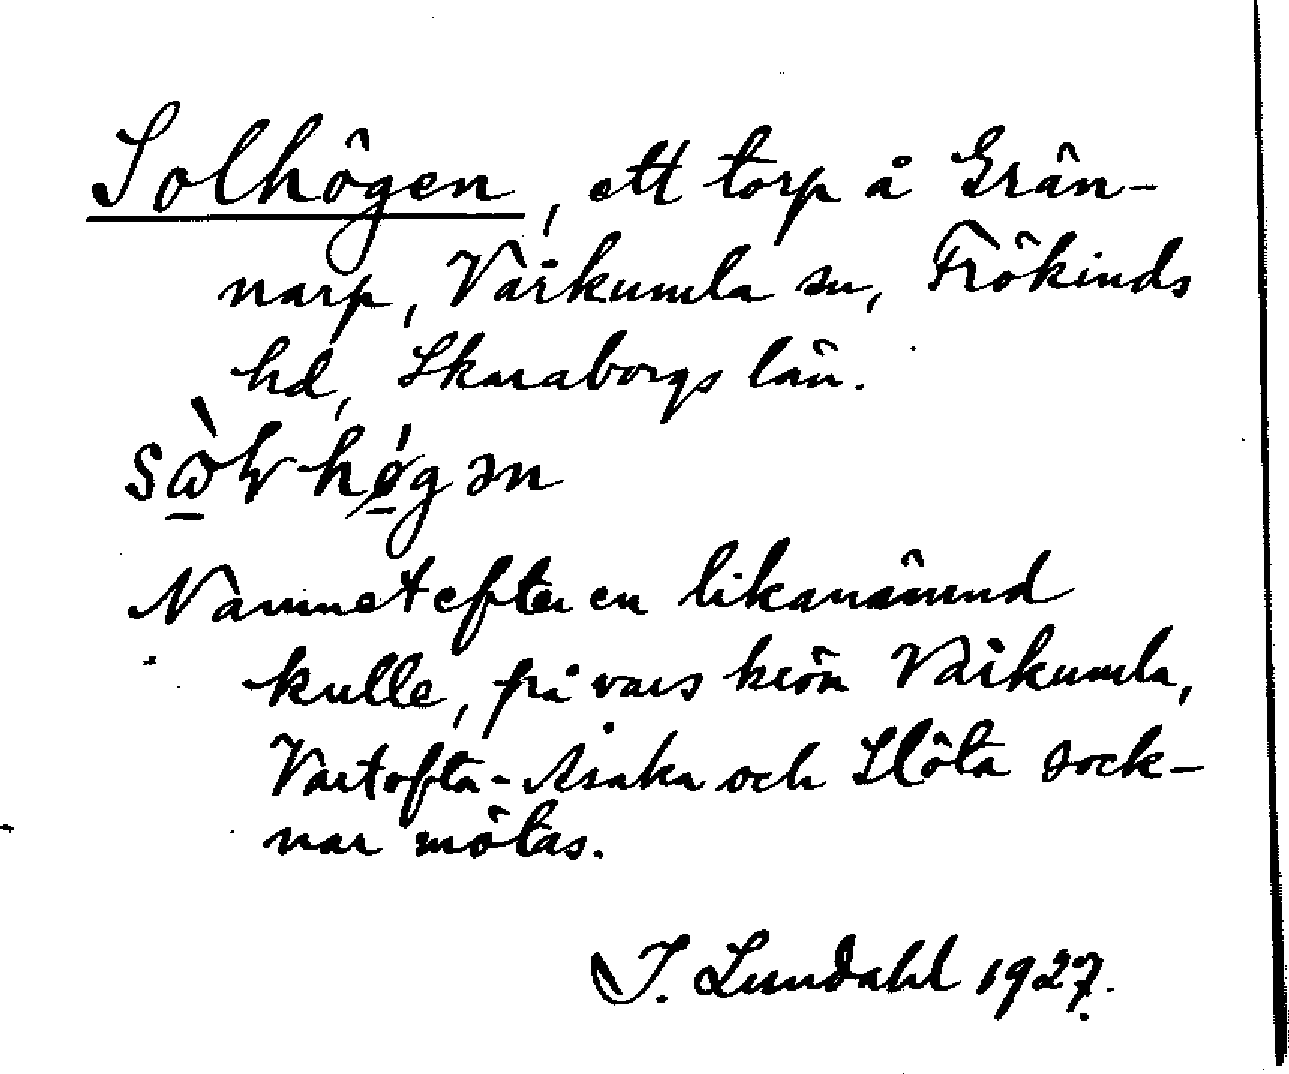 Solhögen, ett torp å Grän-
narp, Vårkumla sn, Frökinds
hd, Skaraborgs län.
Namnet efter en likanämnd
kulle, på vars krön Vårkumla,
Vartofta-Åsaka och Slöta sock-
nar mötas.
I. Lundahl 1927.